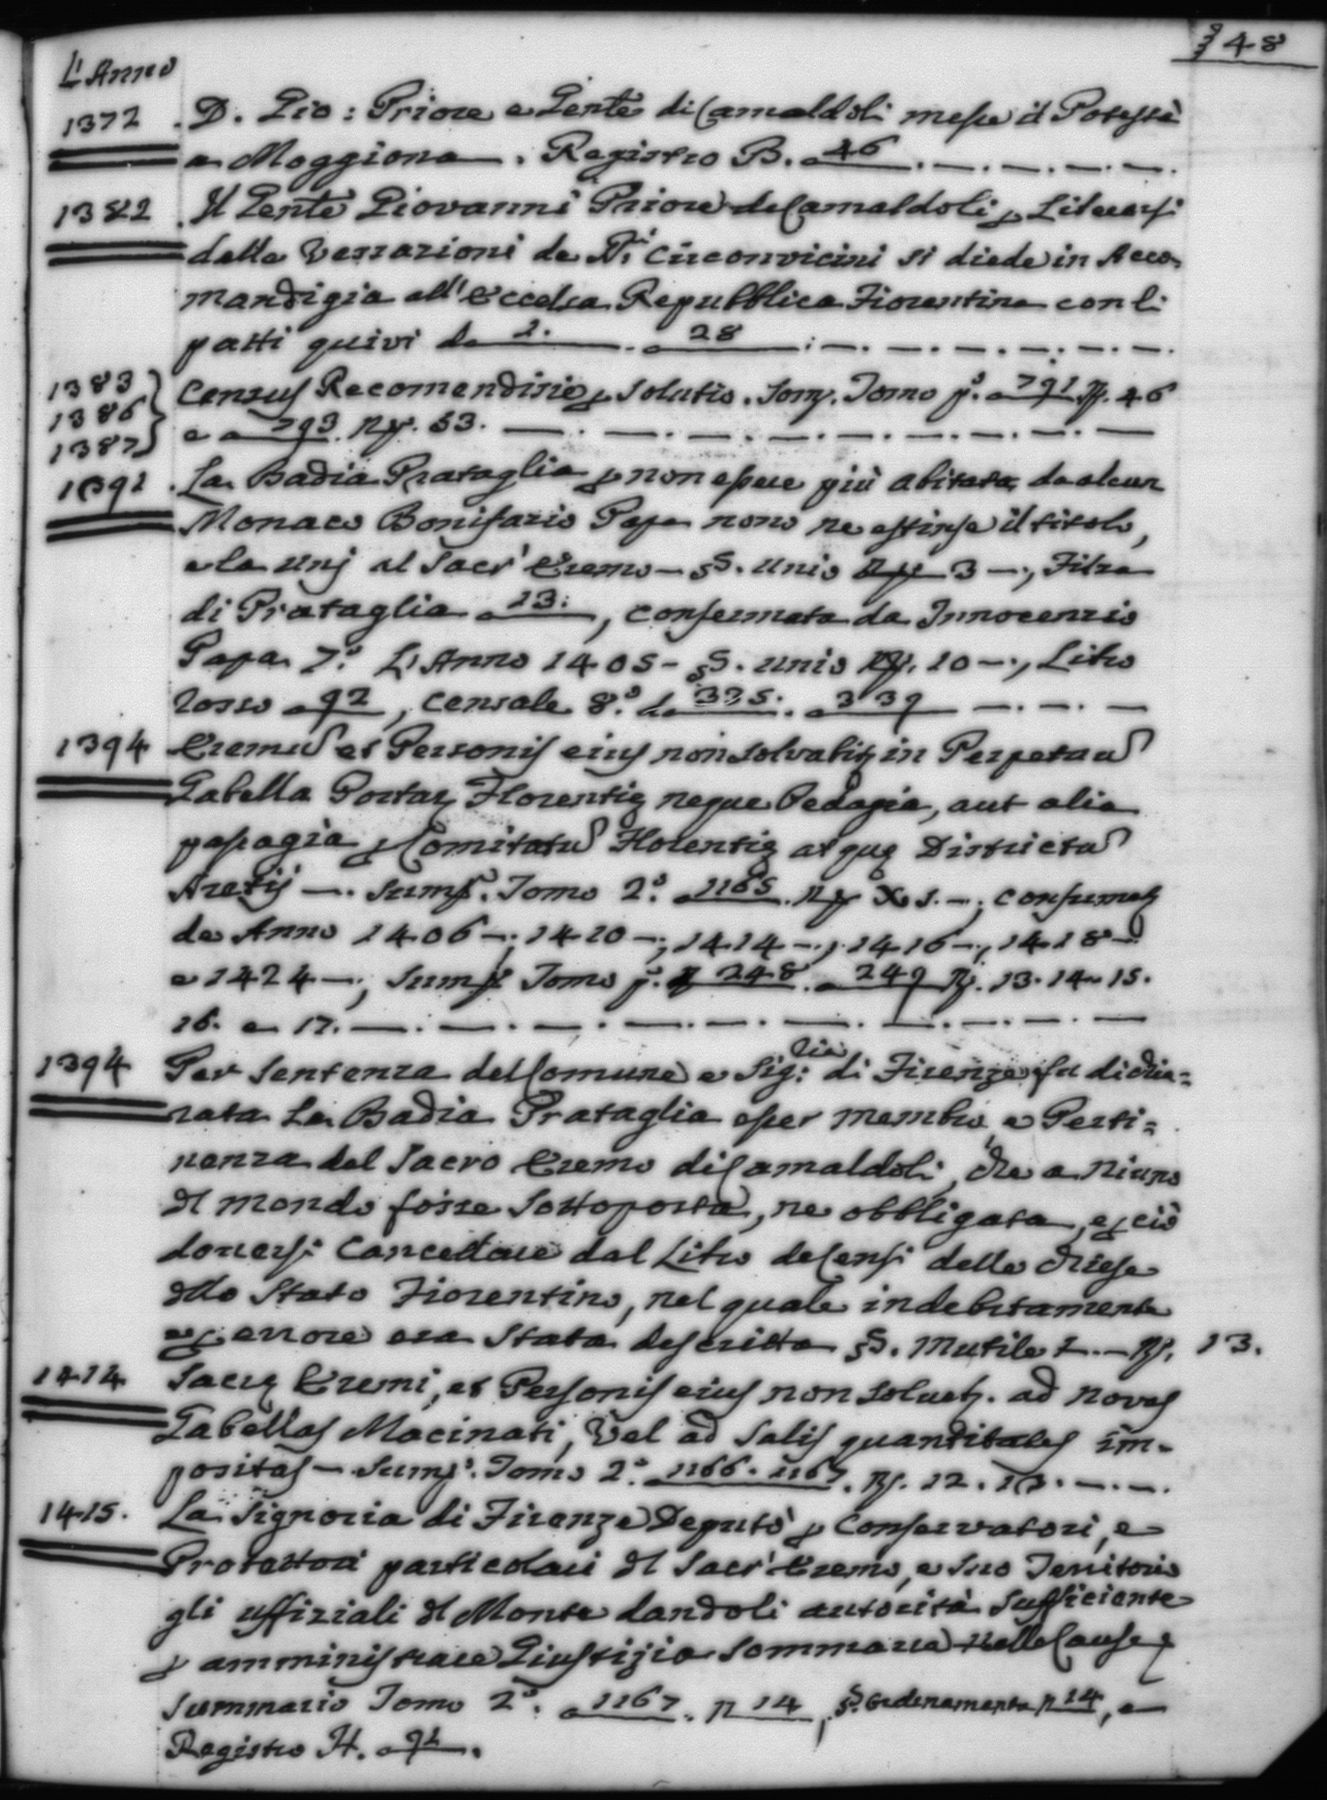 348
L'Anno
1372 . D. Gio: Priore e Gente di Camaldoli messe il Potestà
a Moggiona . Registro B. a 46
1382 . Il Gente Giovanni Priore de Camaldoli, p Liberarsi
dalle Vessazioni de Circonvicini si diede in Acco-
mandigia all' Eccelsa Repubblica Fiorentina con li
patti quivi da 2. a 28
1383
1386
1387
Census Recomendisie p solutis. Som. Tomo p.º a 791 N. 46
e a 793 N. 53.
1391 . La Badia Prataglia p non essere più abitata da alcun
Monaco Bonifazio Papa nono ne estinse il titolo,
e la unj al Sacr' Eremo - §. unio N 3 -, Filza
di Prataglia a 13: , confermata da Innocenzio
Papa 7.º L'Anno 1405 - §. unio N. 10 -, Libro
rosso a 92, censale 8.º da 335. a 339
1394 Eremus et Personis eius non solvatur in Perpetuum
Gabella Portar Florentie neque Pedagia, aut alia
passagia p Comitatum Florentie atque Districtum
Aretij -. Sum. Tomo 2.º a 1165. N X 1. -, confirmat
de Anno 1406 -, 1410 -, 1414 -, 1416 -, 1418 -
e 1424 -, Sum. Tomo p.º 248 a 249 N. 13. 14. 15.
16. e 17.
1394 Per Sentenza del Comune e Sig:ria di Firenze fu dichia=
rata La Badia Prataglia esser membro e Perti=
nenza del Sacro Eremo di Camaldoli, che a Niuno
dl mondo fosse Sottoposta, ne obbligata, e p ciò
doversi Cancellare dal Libro de Censi delle Chiese
dllo Stato Fiorentino, nel quale indebitamente
e p errore era stata descritta §. Mutile 1 - N. 13.
1414 Sacre Eremi, et Personis eius non solvet. ad novas
Gabellas Macinati, Vel ad Salis quantitates im-
positas - Sum. Tomo 2.º 1166. 1167. N. 12. 13.
1415. La Signoria di Firenze Deputò p Conservatori, e
Protettori particolari dl Sacr' Eremo, e suo Territorio
gli uffiziali dl Monte dandoli autorità Sufficiente
p amministrare Giustizia Sommaria nelle Cause,
Summario Tomo 2.º a 1167. N 14, §. Ordinamenta N 14, e
Registro H. a 92.